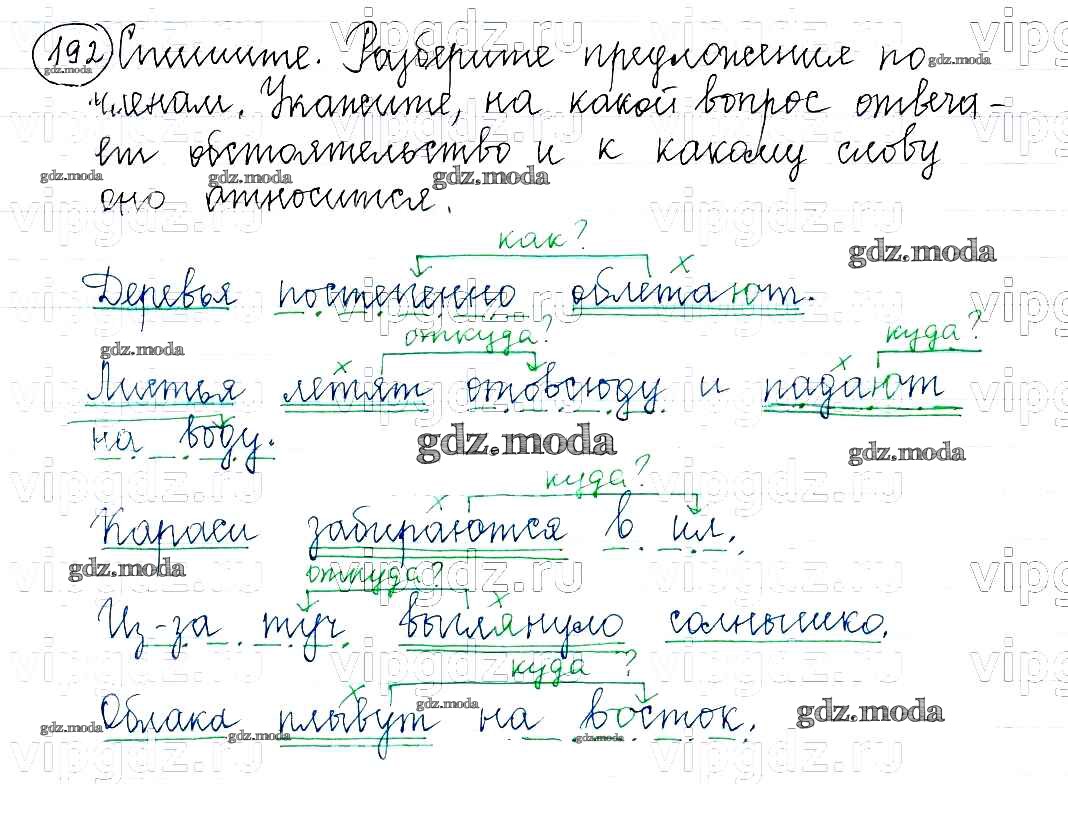 192 Спишите. Разберите предложения по
членам. Укажите, на какой вопрос отвеча-
ет обстоятельство и к какому слову
оно относится.
как?
Деревья постепенно облетают.
откуда? куда?
Листья летят отовсюду и падают
на воду.
куда?
Караси забираются в ил.
откуда?
Из-за туч выглянуло солнышко.
куда ?
Облака плывут на восток.